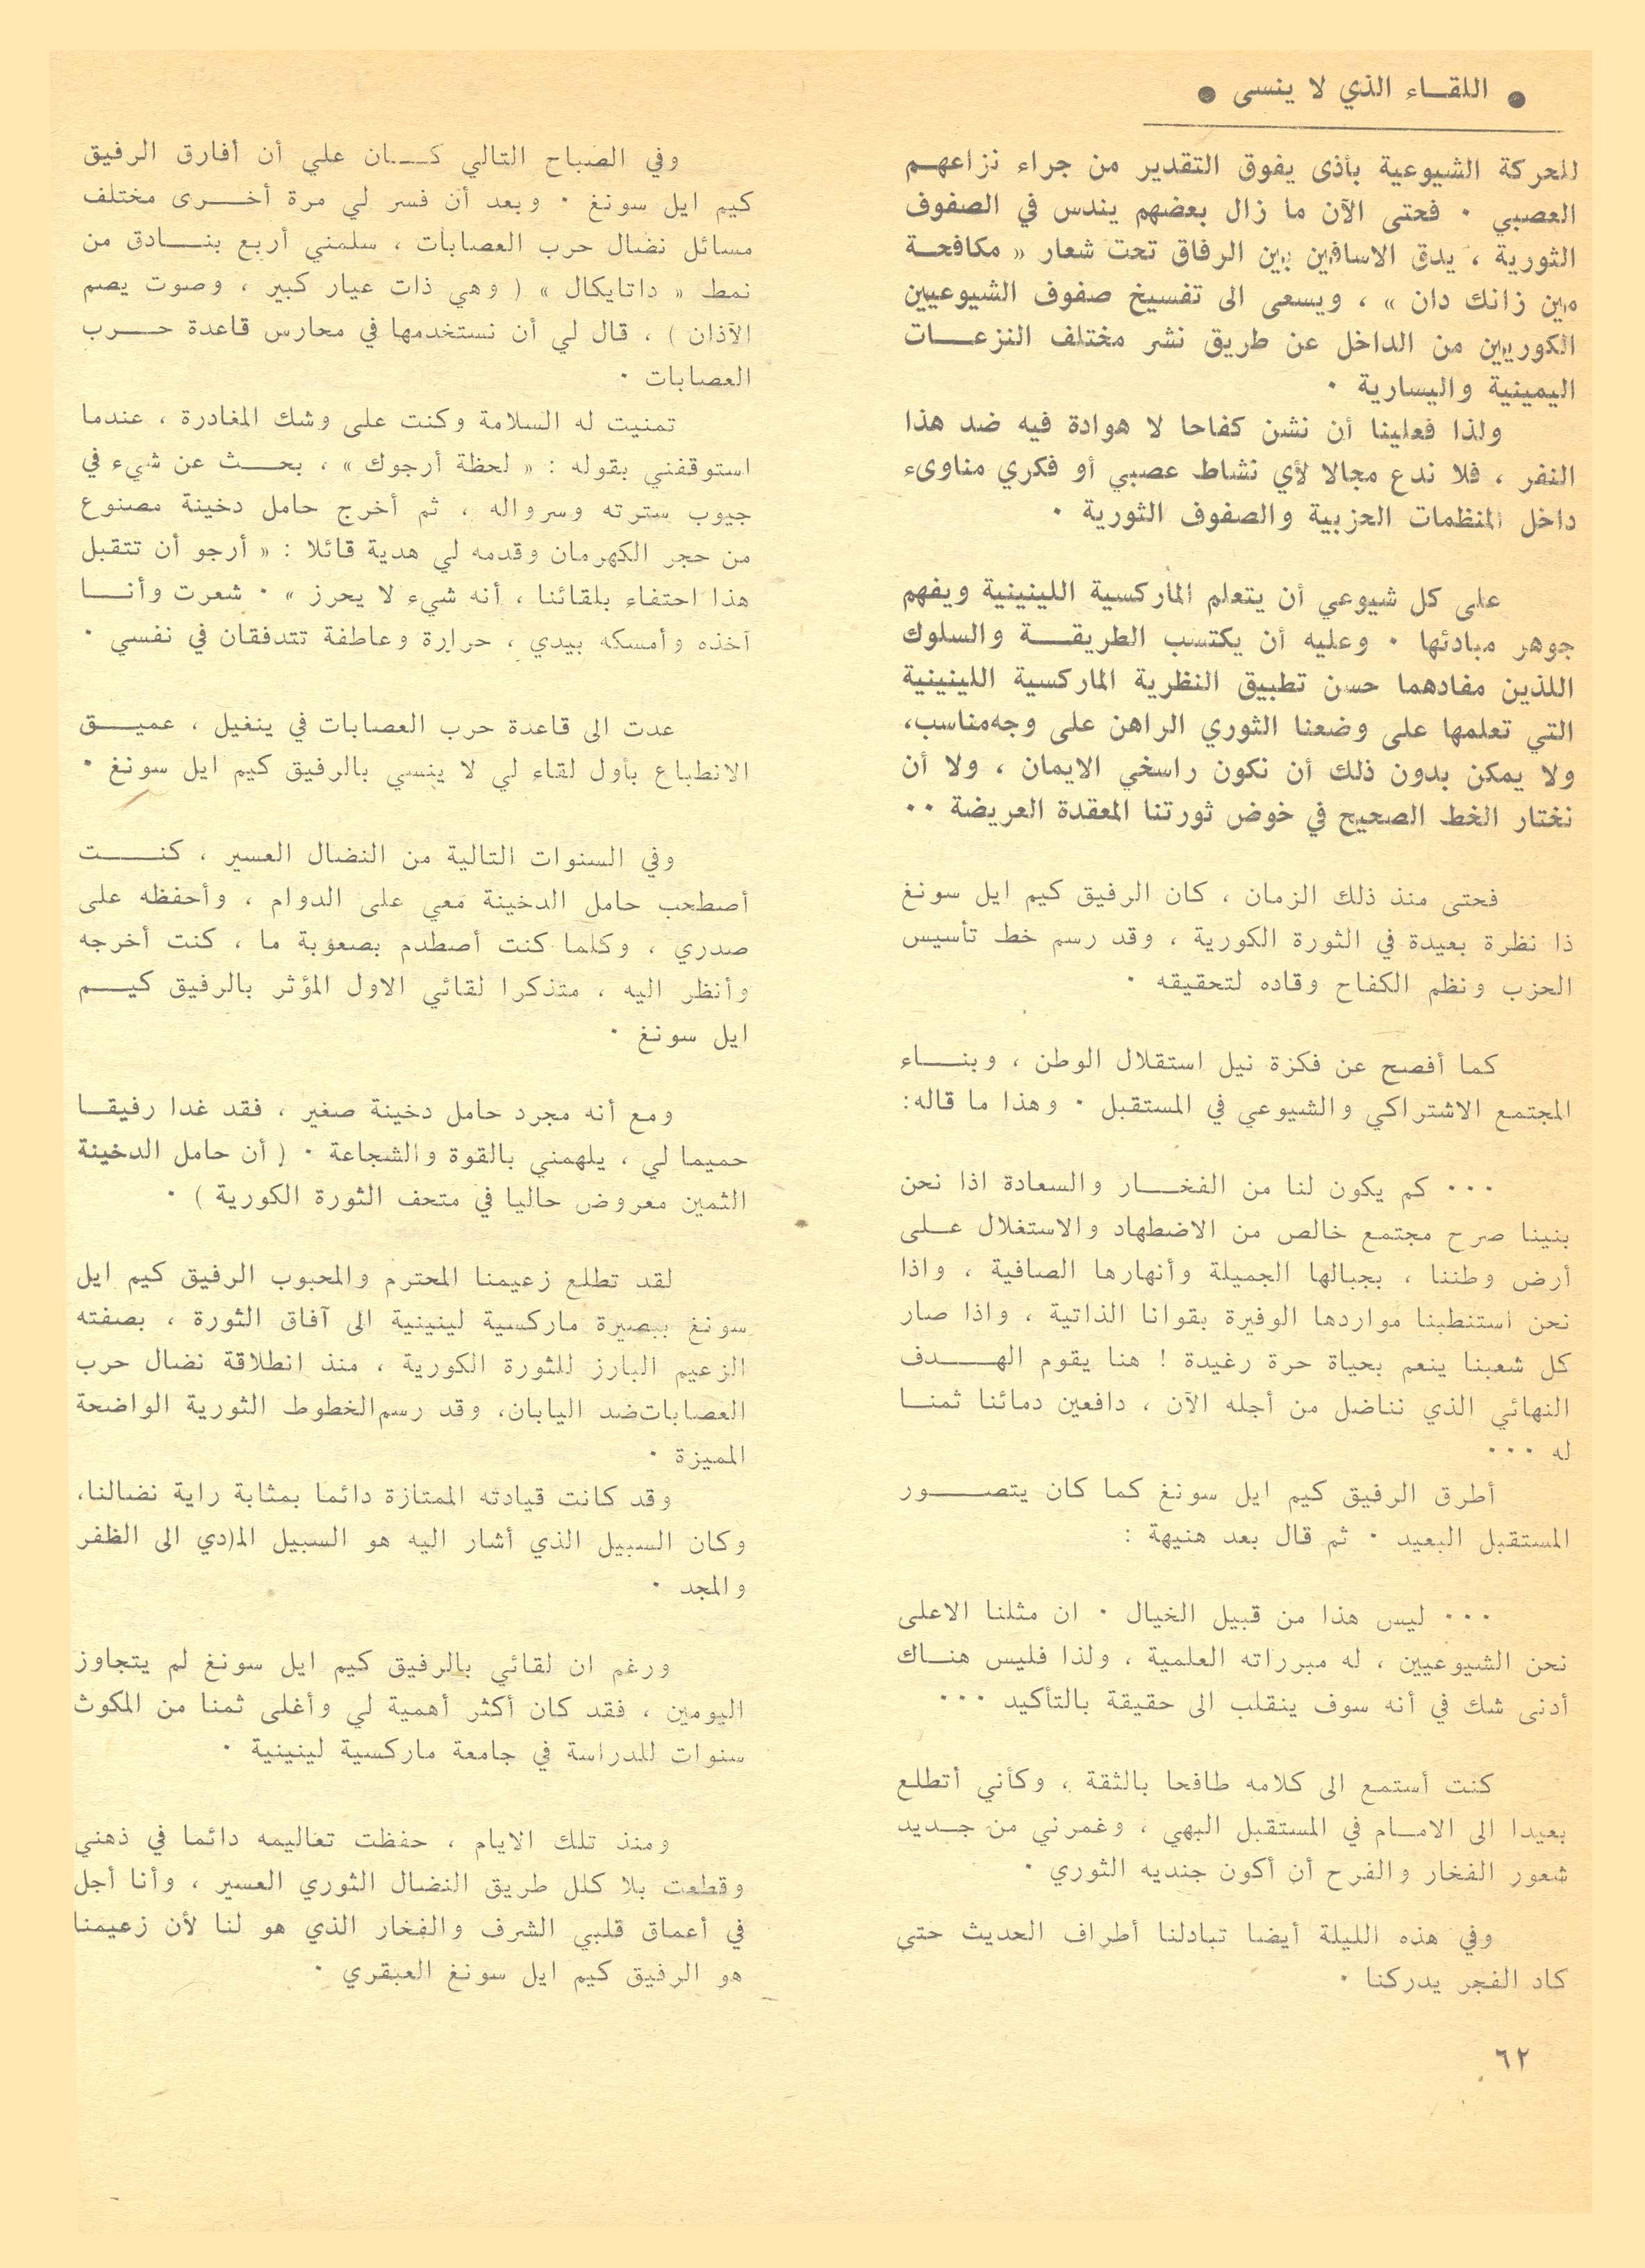 ● اللقــاء الذي لا ينسى ●
للحركة الشيوعية بأذى يفوق التقدير من جراء نزاعهــم
العصبي ٠ فحتى الآن ما زال بعضهم يندس في الصفوف
الثورية ، يدق الاسافين بين الرفاق تحت شعار « مكافحــة
مين زانك دان » ، ويسعى الى تفسيخ صفوف الشيوعيين
الكوريين من الداخل عن طريق نشر مختلف النزعـــات
اليمينية واليسارية ٠
ولذا فعلينا أن نشن كفاحا لا هوادة فيه ضد هذا
النفر ، فلا ندع مجالا لأي نشاط عصبي أو فكري مناوىء
داخل المنظمات الحزبية والصفوف الثورية ٠
على كل شيوعي أن يتعلم الماركسية اللينينية ويفهم
جوهر مبادئها ٠ وعليه أن يكتسب الطريقـــة والسلوك
اللذين مفادهما حسن تطبيق النظرية الماركسية اللينينية
التي تعلمها على وضعنا الثوري الراهن على وجه مناسب،
ولا يمكن بدون ذلك أن نكون راسخي الايمان ، ولا أن
نختار الخط الصحيح في خوض ثورتنا المعقدة العريضة ٠٠
فحتى منذ ذلك الزمان ، كان الرفيق كيم ايل سونغ
ذا نظرة بعيدة في الثورة الكورية ، وقد رسم خط تأسيس
الحزب ونظم الكفاح وقاده لتحقيقه ٠
كما أفصح عن فكرة نيل استقلال الوطن ، وبنـــاء
المجتمع الاشتراكي والشيوعي في المستقبل ٠ وهذا ما قاله:
٠٠٠ كم يكون لنا من الفخـــار والسعادة اذا نحن
بنينا صرح مجتمع خالص من الاضطهاد والاستغلال علــى
أرض وطننا ، بجبالها الجميلة وأنهارها الصافية ، واذا
نحن استنطبنا مواردها الوفيرة بقوانا الذاتية ، واذا صار
كل شعبنا ينعم بحياة حرة رغيدة ! هنا يقوم الهـــدف
النهائي الذي نناضل من أجله الآن ، دافعين دمائنا ثمنــا
له ٠٠٠
أطرق الرفيق كيم ايل سونغ كما كان يتصـــور
المستقبل البعيد ٠ ثم قال بعد هنيهة :
٠٠٠ ليس هذا من قبيل الخيال ٠ ان مثلنا الاعلى
نحن الشيوعيين ، له مبرراته العلمية ، ولذا فليس هنــاك
أدنى شك في أنه سوف ينقلب الى حقيقة بالتأكيد ٠٠٠
كنت أستمع الى كلامه طافحا بالثقة ، وكأني أتطلع
بعيدا الى الامــام في المستقبل البهي ، وغمرني من جــديد
شعور الفخار والفرح أن أكون جنديه الثوري ٠
وفي هذه الليلة أيضا تبادلنا أطراف الحديث حتى
كاد الفجر يدركنا ٠
وفي الصباح التالي كـــان علي أن أفارق الرفيق
كيم ايل سونغ ٠ وبعد أن فسر لي مرة أخـــرى مختلف
مسائل نضال حرب العصابات ، سلمني أربع بنـــادق من
نمط « داتايكال » ( وهي ذات عيار كبير ، وصوت يصم
الآذان ) ، قال لي أن نستخدمها في محارس قاعدة حـــرب
العصابات ٠
تمنيت له السلامة وكنت على وشك المغادرة ، عندما
استوقفني بقوله : « لحظة أرجوك » ، بحــث عن شيء في
جيوب سترته وسرواله ، ثم أخرج حامل دخينة مصنوع
من حجر الكهرمان وقدمه لي هدية قائلا : « أرجو أن تتقبل
هذا احتفاء بلقائنا ، أنه شيء لا يحرز » ٠ شعرت وأنــا
آخذه وأمسكه بيدي ، حرارة وعاطفة تتدفقان في نفسي ٠
عدت الى قاعدة حرب العصابات في ينغيل ، عميـــق
الانطباع بأول لقاء لي لا ينسى بالرفيق كيم ايل سونغ ٠
وفي السنوات التالية من النضال العسير ، كنـــت
أصطحب حامل الدخينة معي على الدوام ، وأحفظه على
صدري ، وكلما كنت أصطدم بصعوبة ما ، كنت أخرجه
وأنظر اليه ، متذكرا لقائي الاول المؤثر بالرفيق كيـــم
ايل سونغ ٠
ومع أنه مجرد حامل دخينة صغير ، فقد غدا رفيقــا
حميما لي ، يلهمني بالقوة والشجاعة ٠ ( أن حامل الدخينة
الثمين معروض حاليا في متحف الثورة الكورية ) ٠
لقد تطلع زعيمنا المحترم والمحبوب الرفيق كيم ايل
سونغ ببصيرة ماركسية لينينية الى آفاق الثورة ، بصفته
الزعيم البارز للثورة الكورية ، منذ انطلاقة نضال حرب
العصابات ضد اليابان، وقد رسم الخطوط الثورية الواضحة
المميزة ٠
وقد كانت قيادته الممتازة دائما بمثابة راية نضالنا،
وكان السبيل الذي أشار اليه هو السبيل الم(دي الى الظفر
والمجد ٠
ورغم ان لقائي بالرفيق كيم ايل سونغ لم يتجاوز
اليومين ، فقد كان أكثر أهمية لي وأغلى ثمنا من المكوث
سنوات للدراسة في جامعة ماركسية لينينية ٠
ومنذ تلك الايام ، حفظت تعاليمه دائما في ذهني
وقطعت بلا كلل طريق النضال الثوري العسير ، وأنا أجل
في أعماق قلبي الشرف والفخار الذي هو لنا لأن زعيمنا
هو الرفيق كيم ايل سونغ العبقري ٠
٦٢